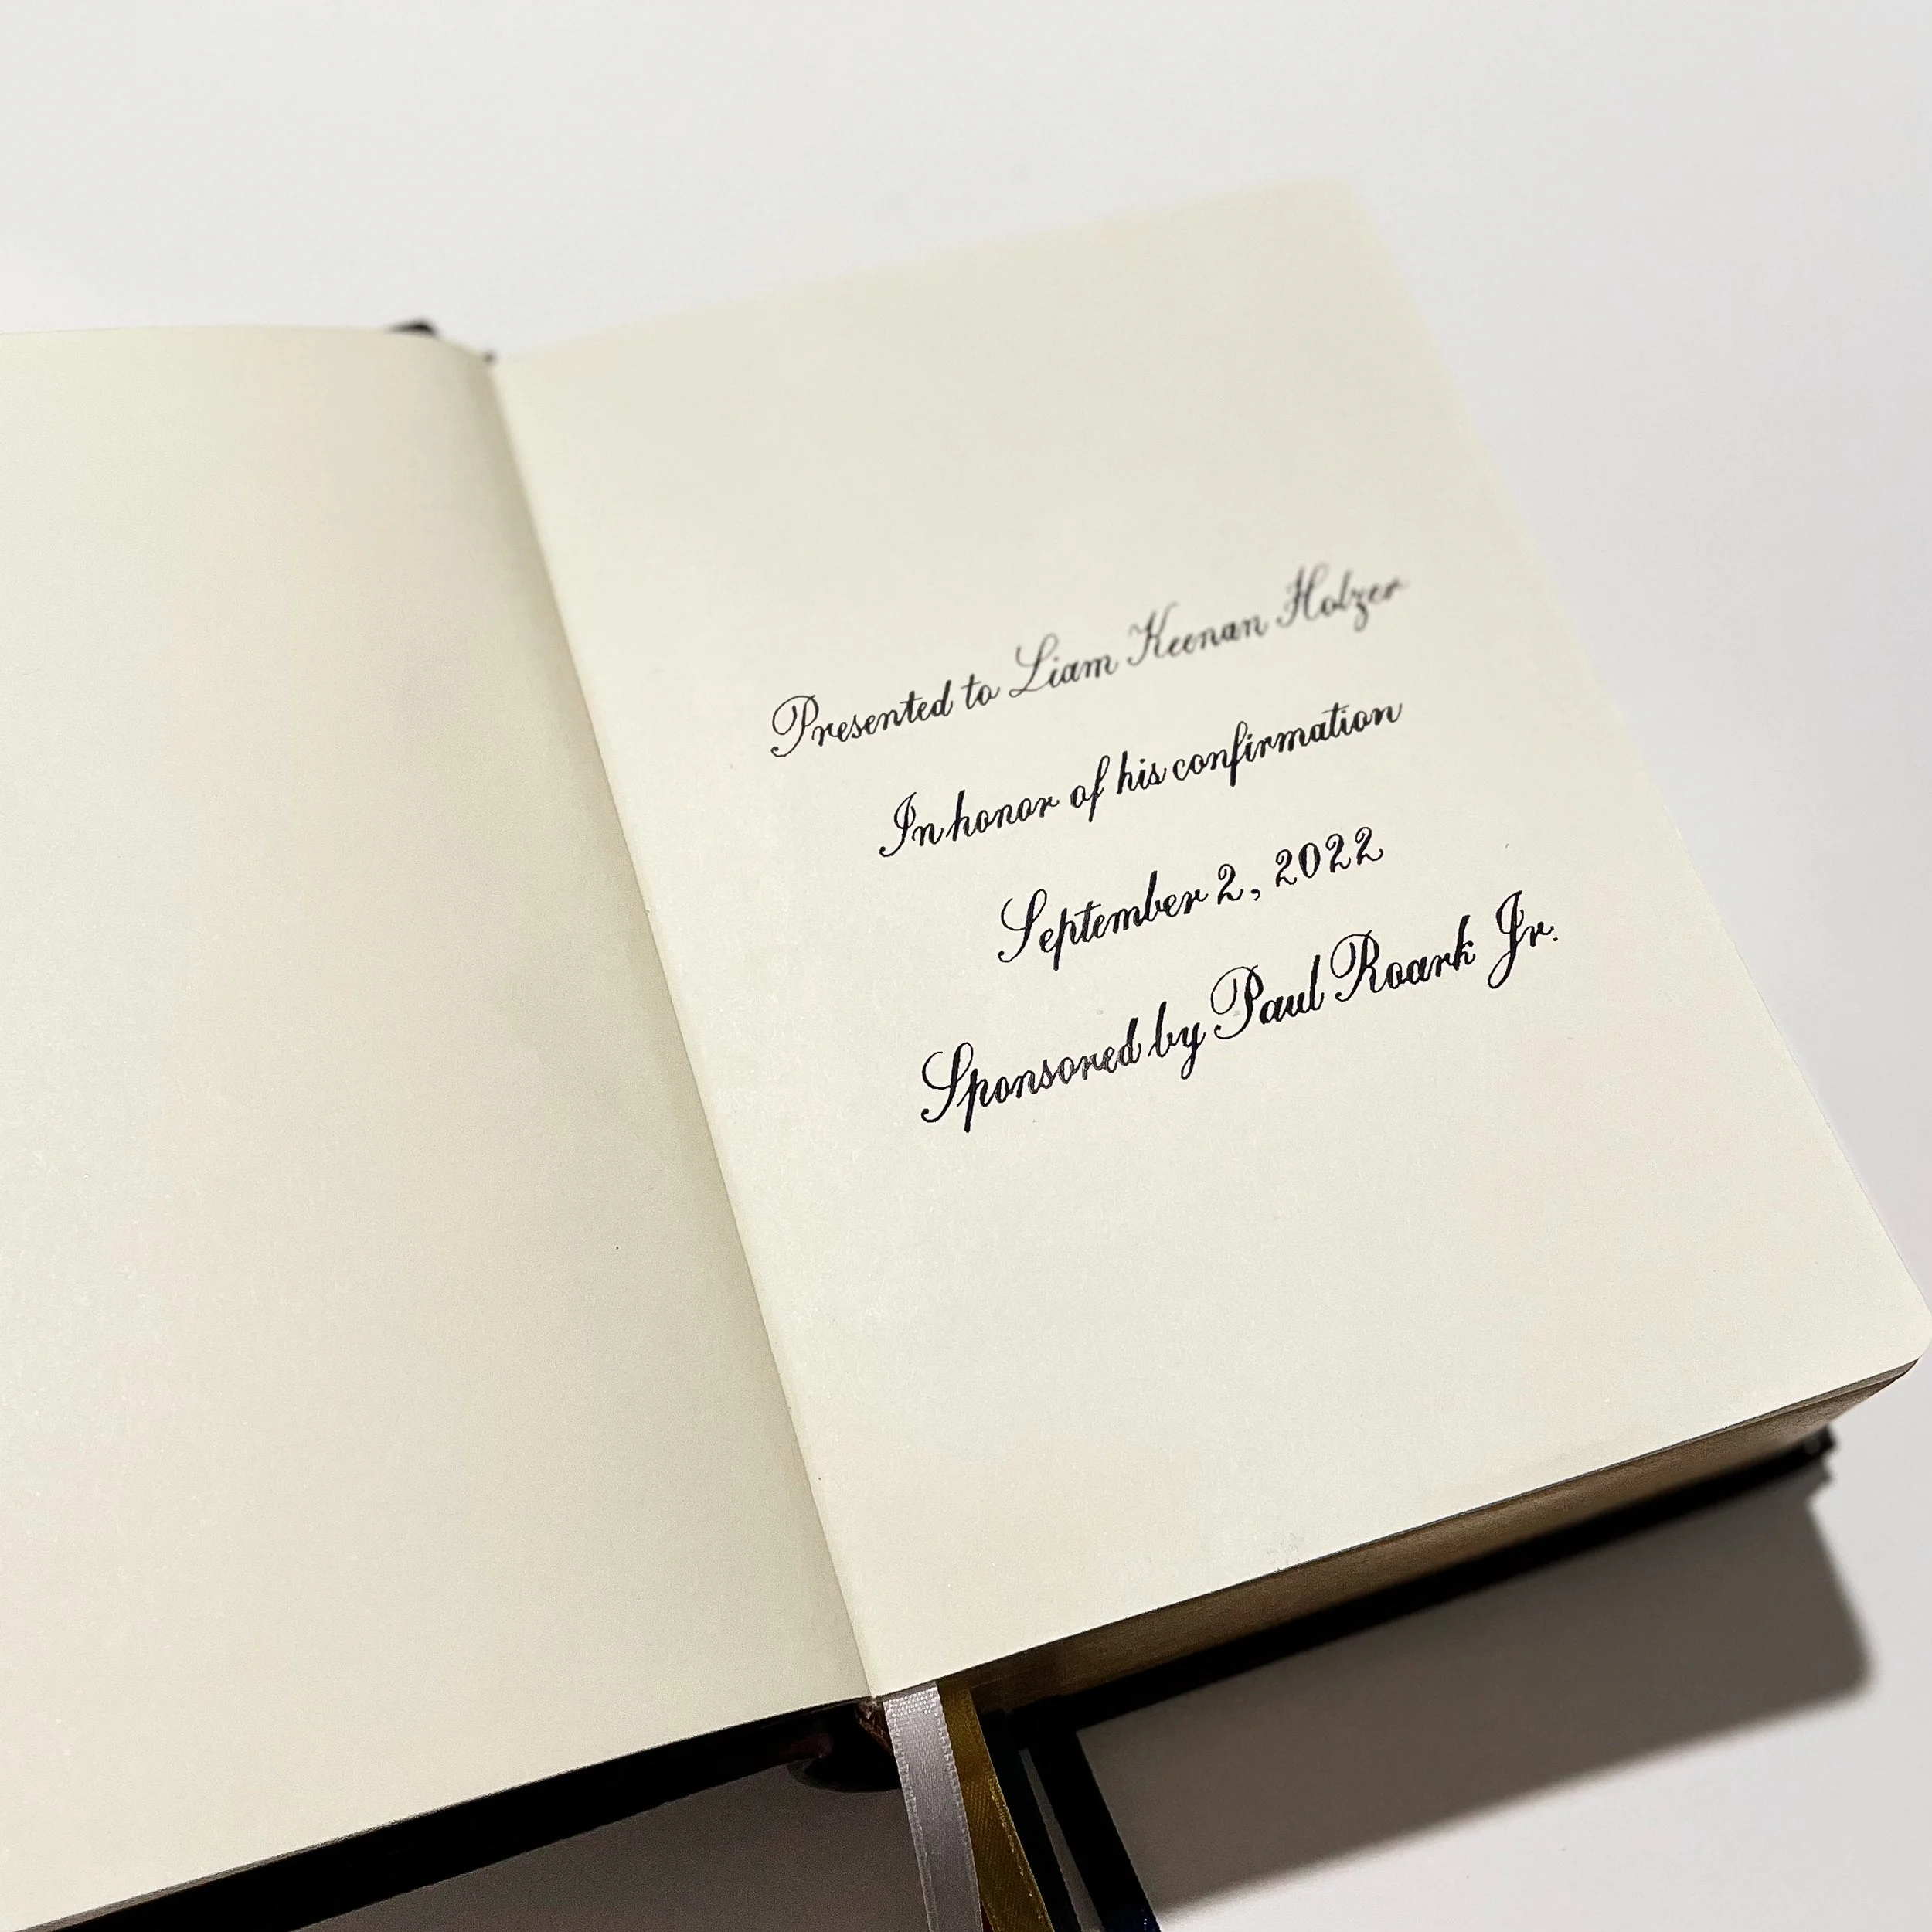 Presented to Liam Keenan Holzer
In honor of his confirmation
September 2, 2022
Sponsored by Paul Roark Jr.